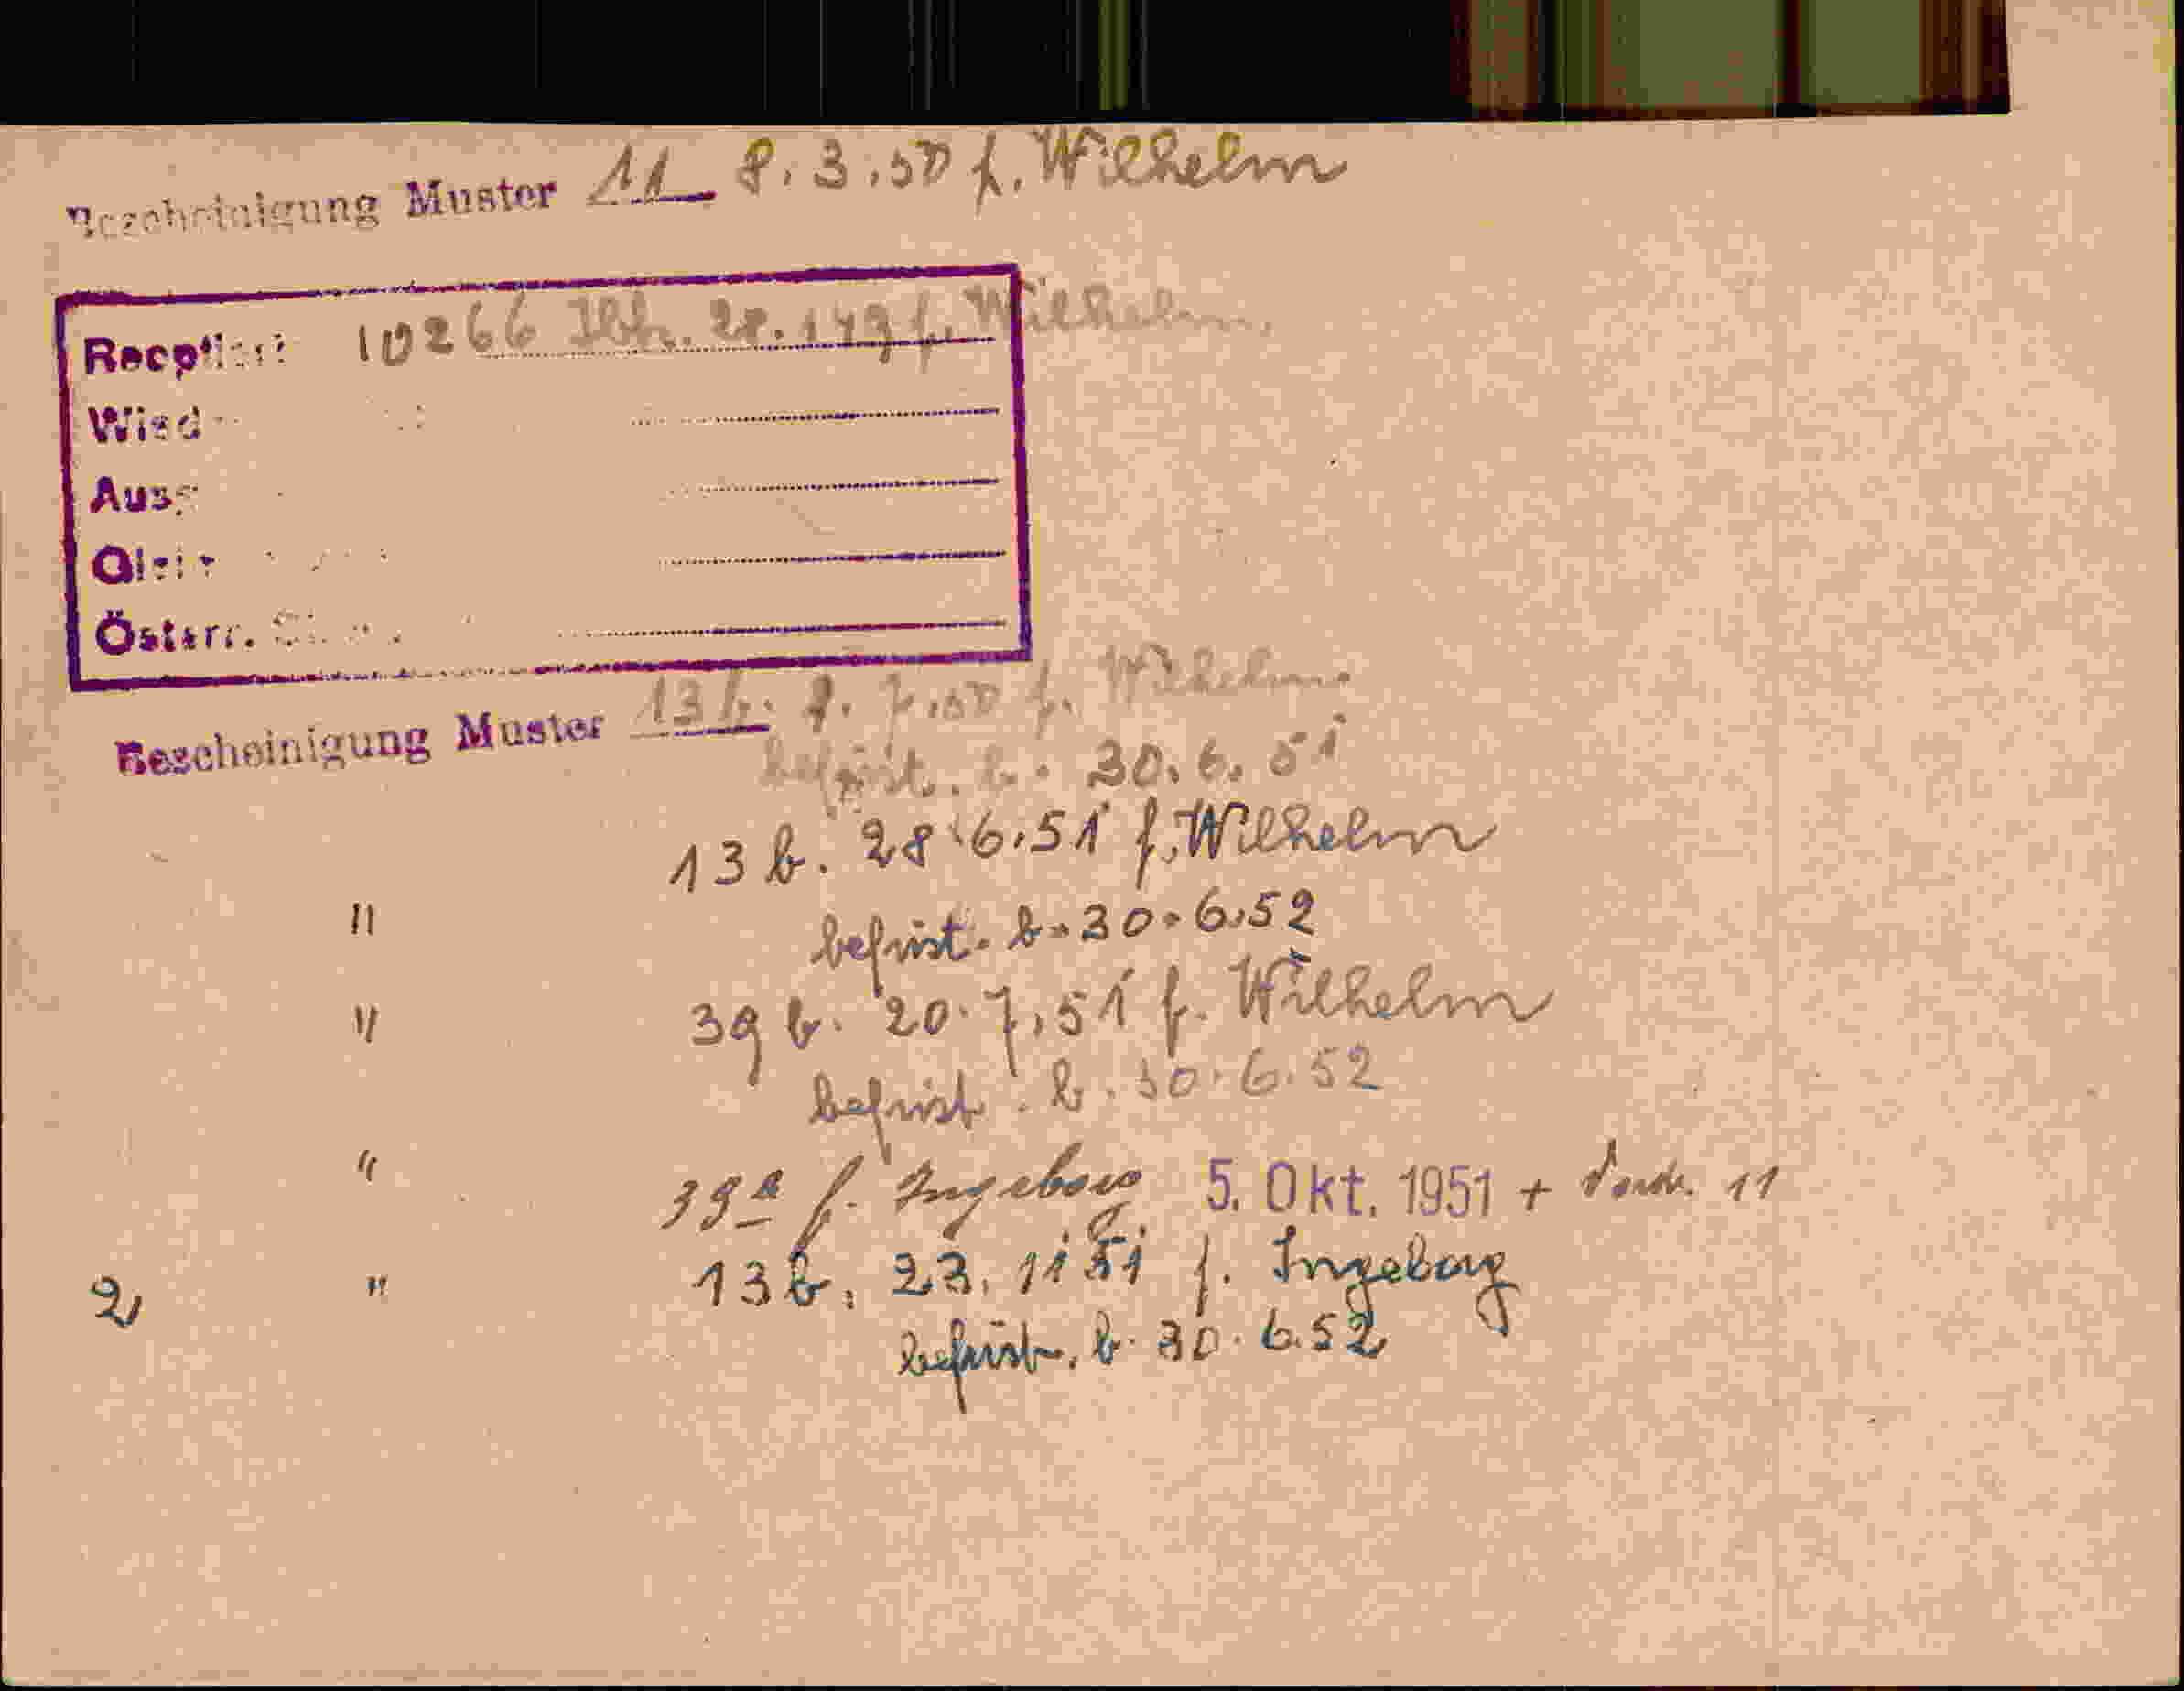 Bescheinigung Muster 11 8.3.50 f. Wilhelm
10266 28.1.49 f. Wilhelm
Österr.
Bescheinigung Muster 13b. 7.50 f. Wilhelm
befrist. b. 30.6.51
13 b. 28.6.51 f. Wilhelm
" befrist. b. 30.6.52
" 39 b. 20.7.51 f. Wilhelm
befrist. b. 30.6.52
" 39a f. Ingeborg 5. Okt. 1951 + 11
2) " 13b. 23.11.51 f. Ingeborg
befrist. b. 30.6.52